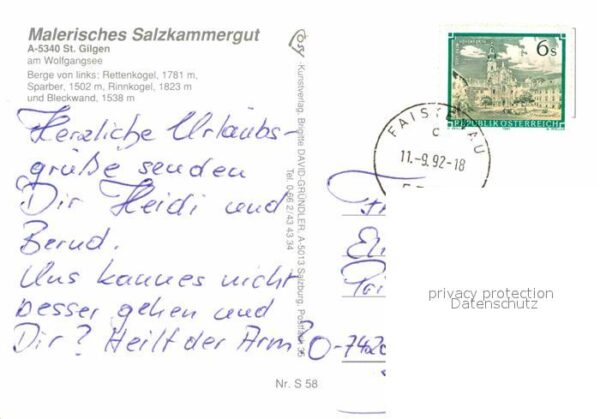 Malerisches Salzkammergut
A-5340 St. Gilgen
am Wolfgangsee
Berge von links: Rettenkogel, 1781 m,
Sparber, 1502 m, Rinnkogel, 1823 m
und Bleckwand, 1538 m
Herzliche Urlaubs-
grüße senden
Dir Heidi und
Bernd.
Uns kann es nicht
besser gehen und
Dir? Heilt der Arm?
Kunstverlag Brigitte DAVID-GRÜNDLER, A-5013 Salzburg, Postfach 35
Tel. 0 66 2/43 43 34
Nr. S 58
6s
REPUBLIK ÖSTERREICH
FAISTENAU
c
11.-9.92-18
O-742
privacy protection
Datenschutz